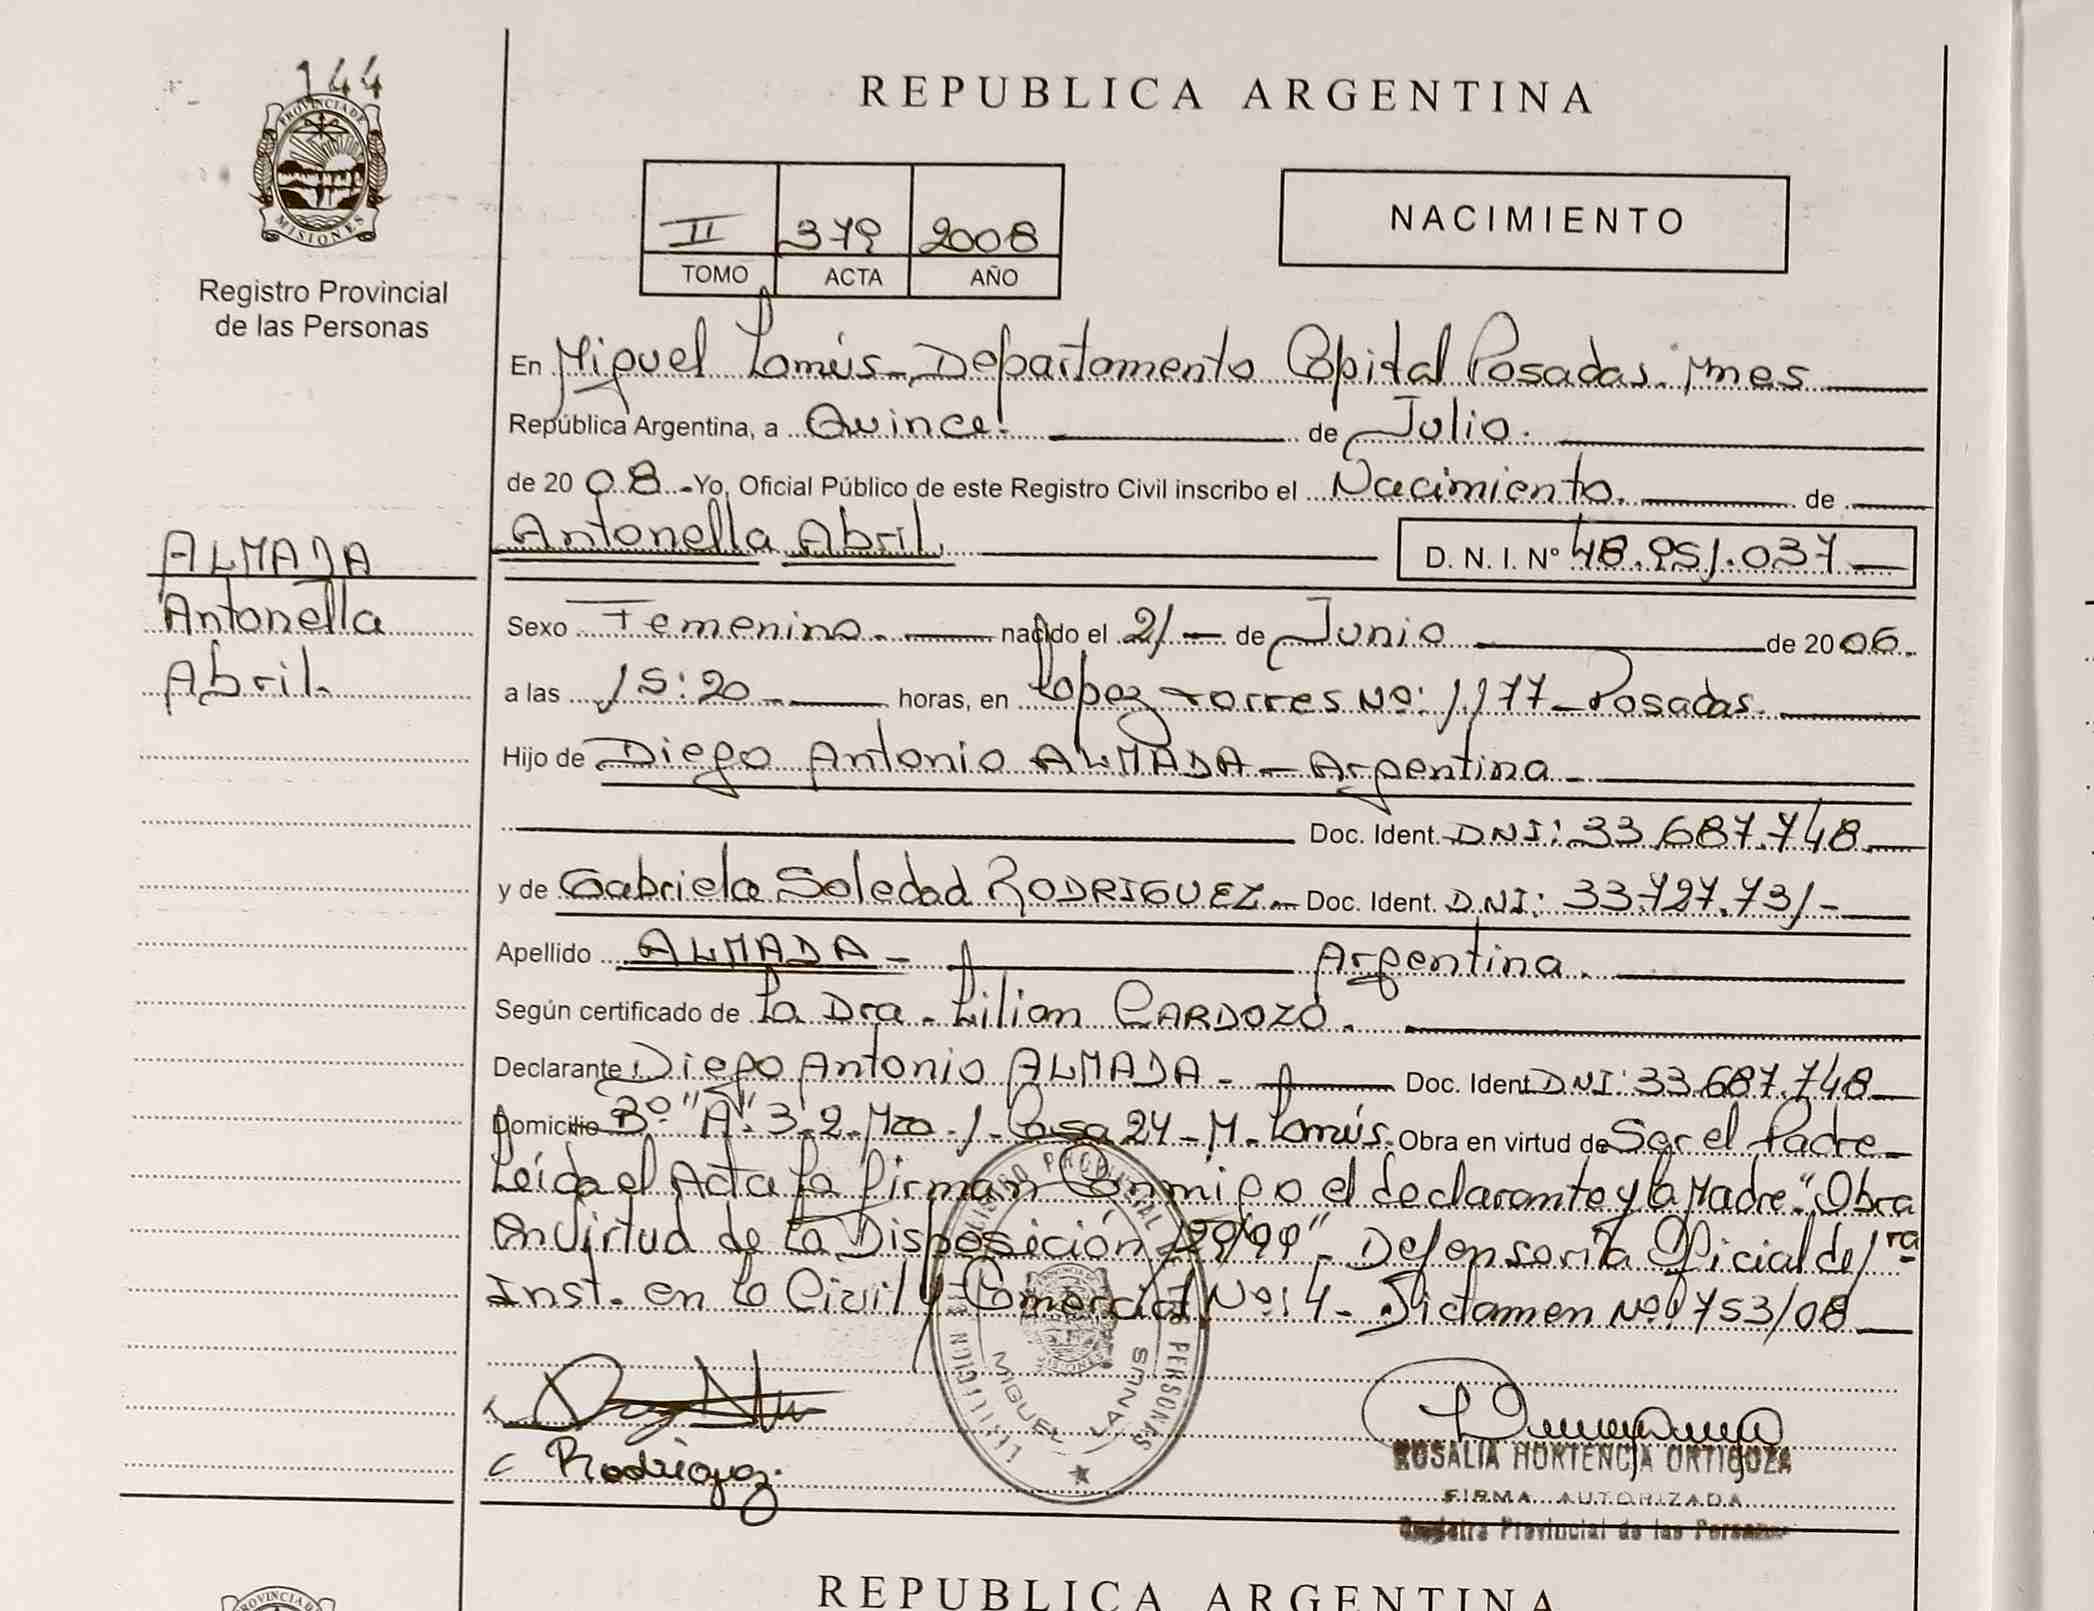 144
PROVINCIA DE
MISIONES
Registro Provincial
de las Personas
REPUBLICA ARGENTINA
II 379 2008
TOMO ACTA AÑO
NACIMIENTO
En Miguel Lanús - Departamento Capital Posadas. Mnes
República Argentina, a Quince. de Julio.
de 20 08 - Yo, Oficial Público de este Registro Civil inscribo el Nacimiento. de
Antonella Abril. D. N. I. Nº 48.951.037
ALMADA
Antonella
Abril.
Sexo Femenino. nacido el 21 de Junio de 2006.
a las 15:20 horas, en Lopez Torres Nº: 1.177 - Posadas.
Hijo de Diego Antonio ALMADA - Argentina -
Doc. Ident. DNI: 33.687.748
y de Gabriela Soledad RODRIGUEZ - Doc. Ident. DNI: 33.727.731 -
Apellido ALMADA - Argentina.
Según certificado de La Dra - Lilian CARDOZO.
Declarante Diego Antonio ALMADA - Doc. Ident. DNI: 33.687.748
Domicilio Bº "A" 3.2 - Mza - 1 - Casa 24 - M - Lanús. Obra en virtud de Ser el Padre -
Leída el Acta La firman Conmigo el declarante y la Madre - "Obra
en Virtud de La Disposición 29/99" - Defensoría Oficial de 1ra
Inst. en lo Civil y Comercial Nº: 4 - Dictamen Nº 1753/08
Rodriguez
MIGUEL LANUS
PERSONAS
ROSALIA HORTENCIA ORTIGOZA
FIRMA AUTORIZADA
Registro Provincial de las Personas
REPUBLICA ARGENTINA
PROVINCIA D